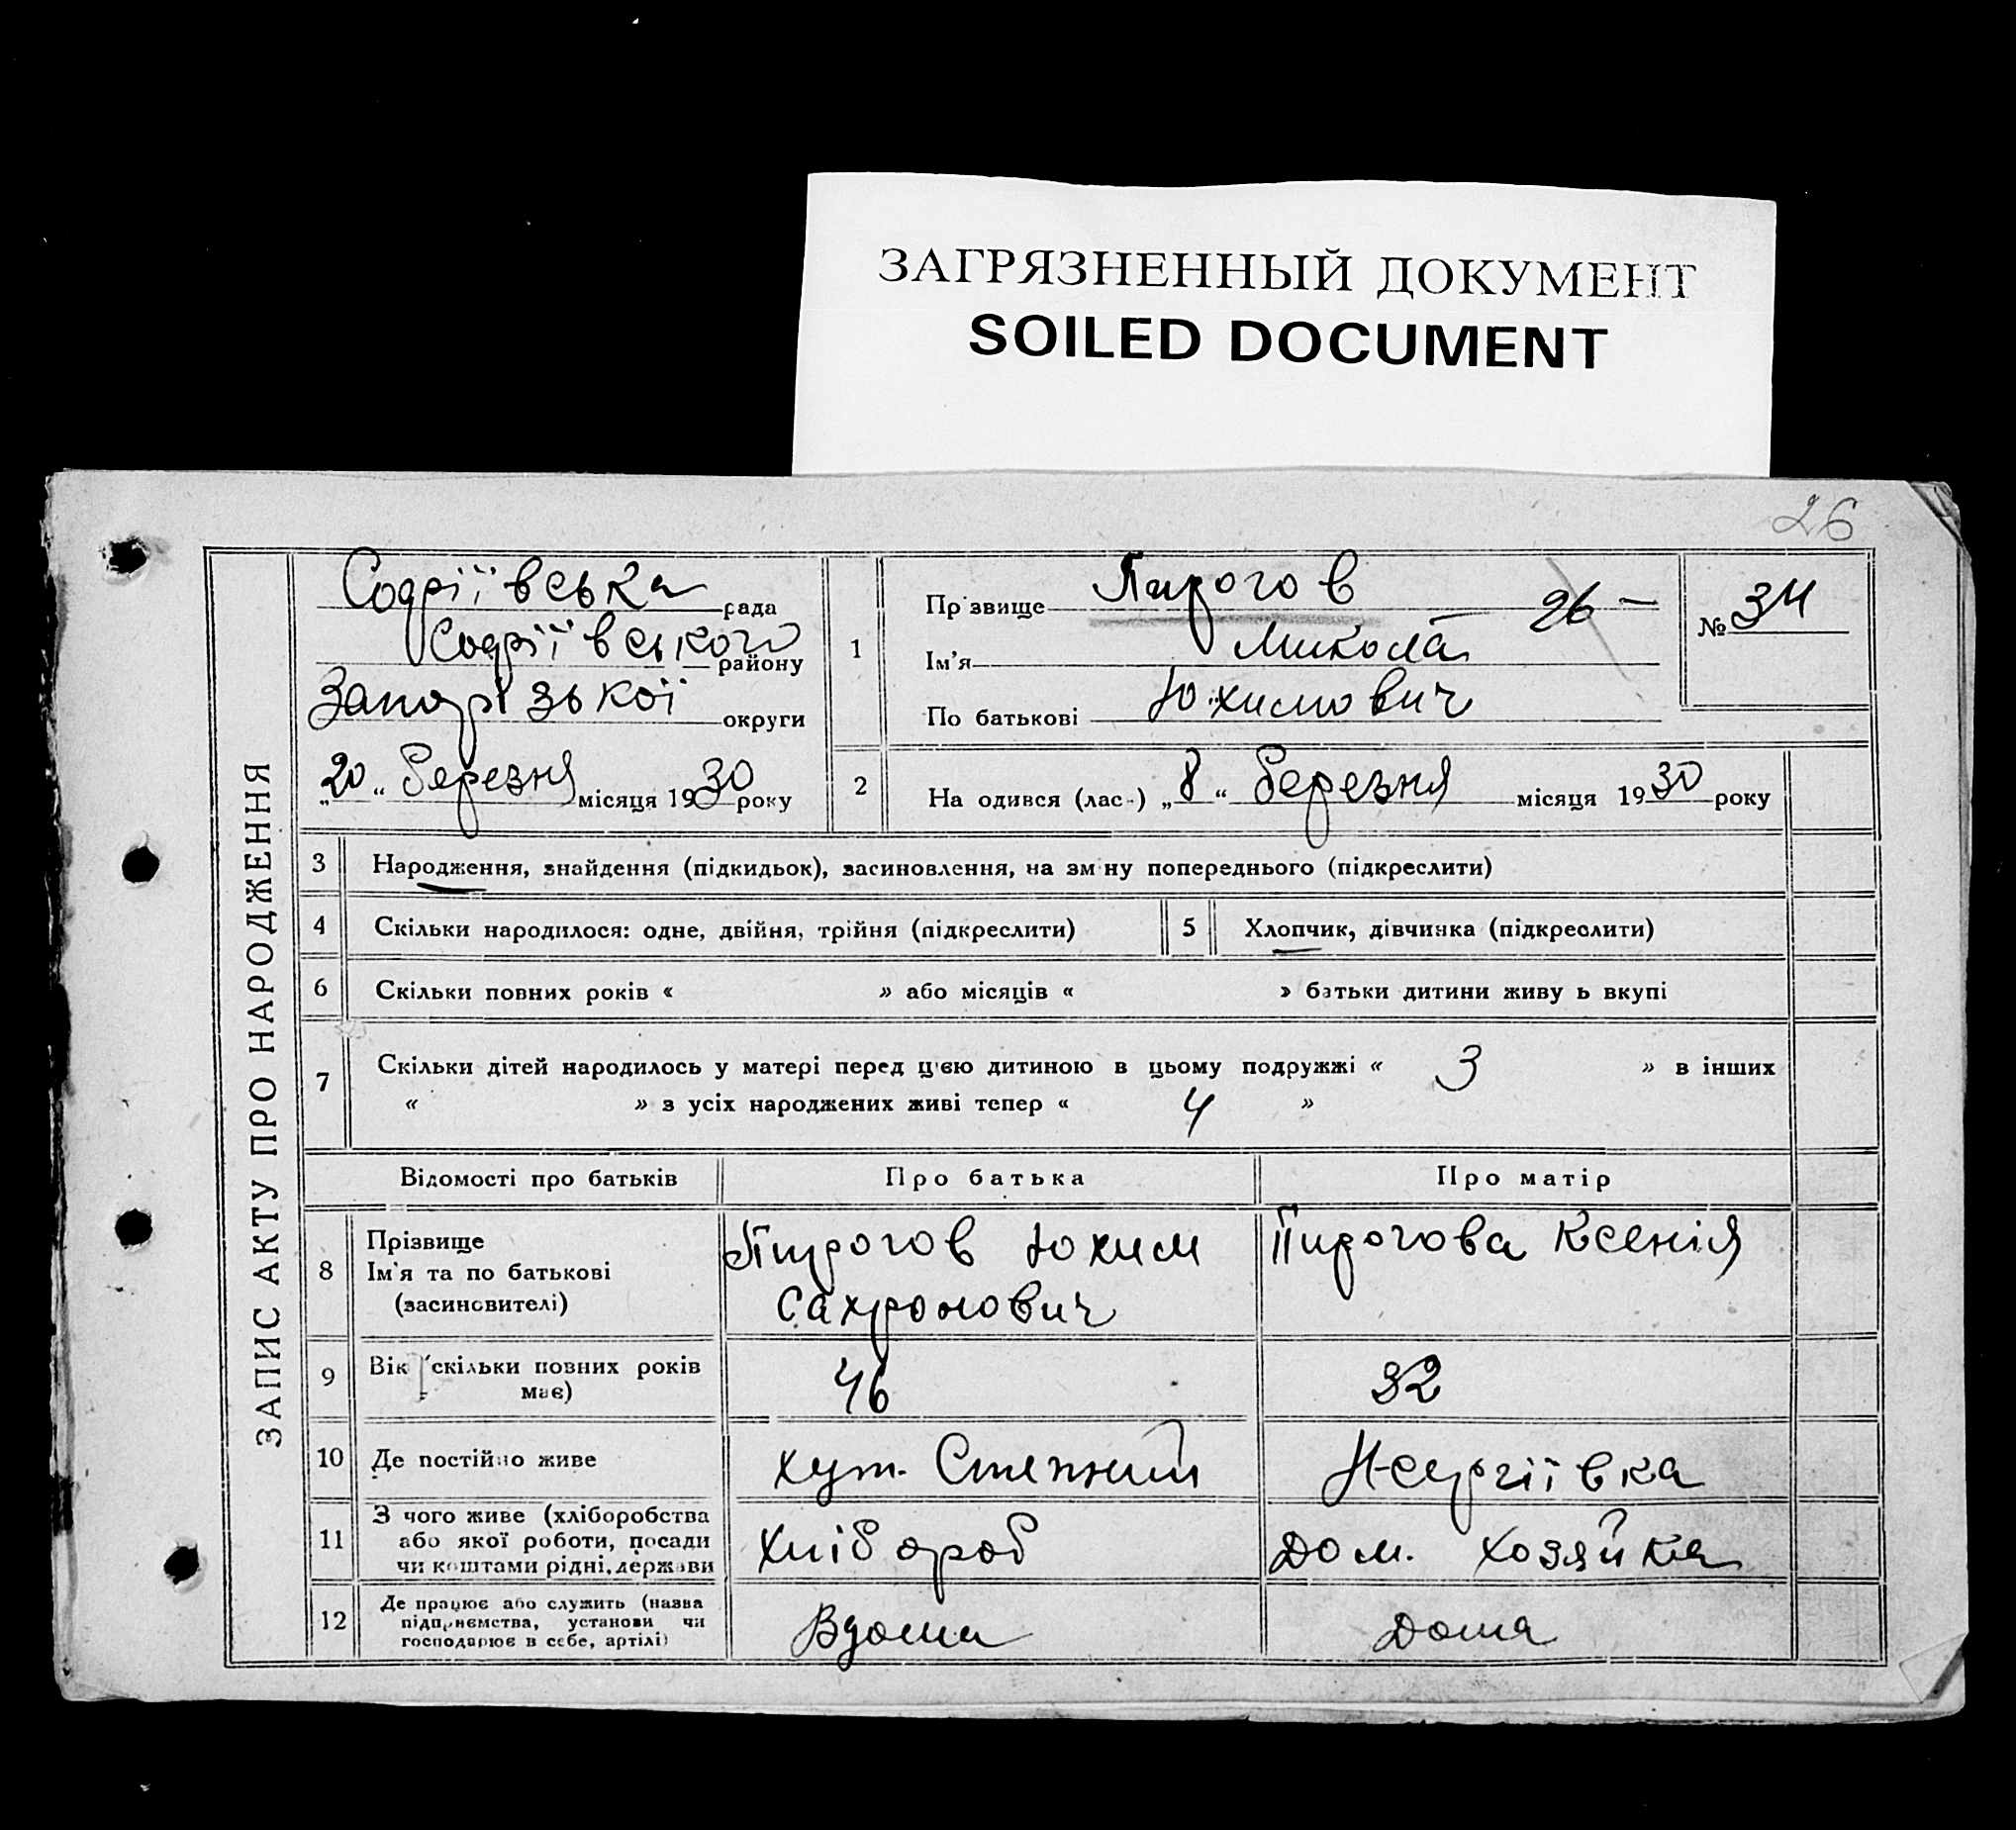 ЗАГРЯЗНЕННЫЙ ДОКУМЕНТ
SOILED DOCUMENT
26
ЗАПИС АКТУ ПРО НАРОДЖЕННЯ
Софіївська рада
Софіївського району
Запорізької округи
„20“ березня місяця 1930 року
1
Прізвище Пирогов
26 —
Ім'я Микола
По батькові Юхимович
№ 34
2
На одився (лас-) „8“ березня місяця 1930 року
3 Народження, знайдення (підкидьок), засиновлення, на зм ну попереднього (підкреслити)
4 Скільки народилося: одне, двійня, трійня (підкреслити)
5 Хлопчик, дівчинка (підкреслити)
6 Скільки повних років « » або місяців « » батьки дитини живу ь вкупі
7 Скільки дітей народилось у матері перед цією дитиною в цьому подружжі « 3 » в інших
« » з усіх народжених живі тепер « 4 »
Відомості про батьків Про батька Про матір
8 Прізвище
Ім'я та по батькові
(засиновителі)
Пирогов Юхим
Сахронович
Пирогова Ксенія
9 Вік (скільки повних років
має)
46
32
10 Де постійно живе
хут. Степний
11 З чого живе (хліборобства
або якої роботи, посади
чи коштами рідні, держави
Хлібороб
Дом. хозяйка
12 Де працює або служить (назва
підприємства, установи чи
господарює в себе, артілі)
Вдома
Дома